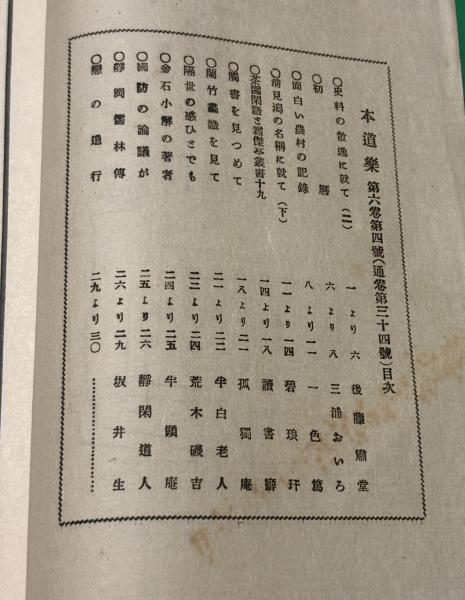 本道樂 第六卷第四號(通卷第三十四號)目次
〇史料の散逸に就て(二) 一より六 後藤肅堂
〇初曆 六より八 三浦おいろ
〇面白い農村の記錄 八より一一 一色篤
〇淸見潟の名稱に就て(下) 一一より一四 碧琅玕
〇茶園閑話と霧傑亭叢書十九 一四より一八 讀書癖
〇觸書を見つめて 一八より二一 孤獨庵
〇蘭竹畵譏を見て 二一より二二 半白老人
〇隔世の感ひとでも 二二より二四 荒木磯吉
〇金石小解の著者 二四より二五 牛頭庵
〇國防の論議が 二五より二六 靜閑道人
〇靜岡儒林傳 二六より二九 坂井生
〇戀の道行 二九より三〇 ………………